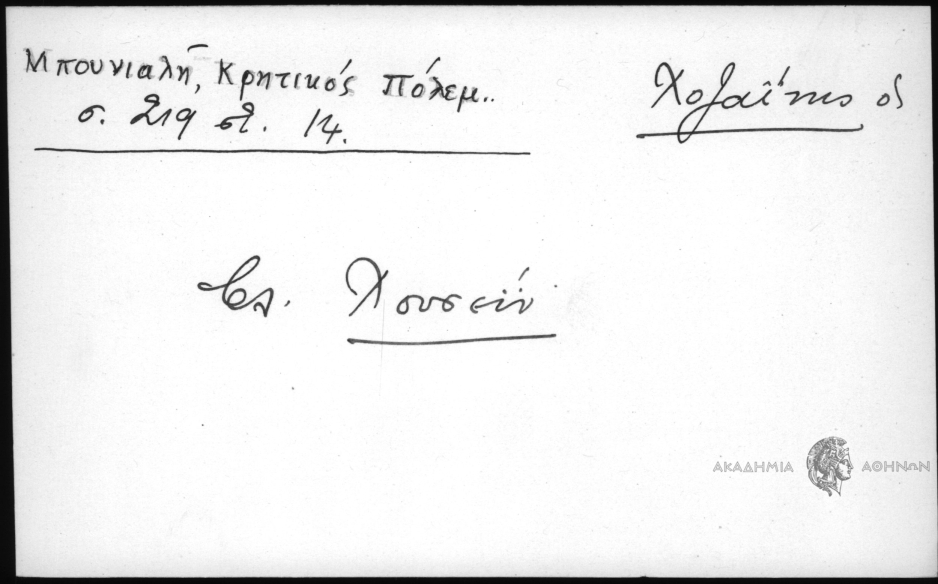 Μπουνιαλῆ, Κρητικός Πόλεμ..
σ. 219 στ. 14.
Χοζαΐνης ὁ
Βλ. Χουσεΐν
ΑΚΑΔΗΜΙΑ ΑΘΗΝΩΝ